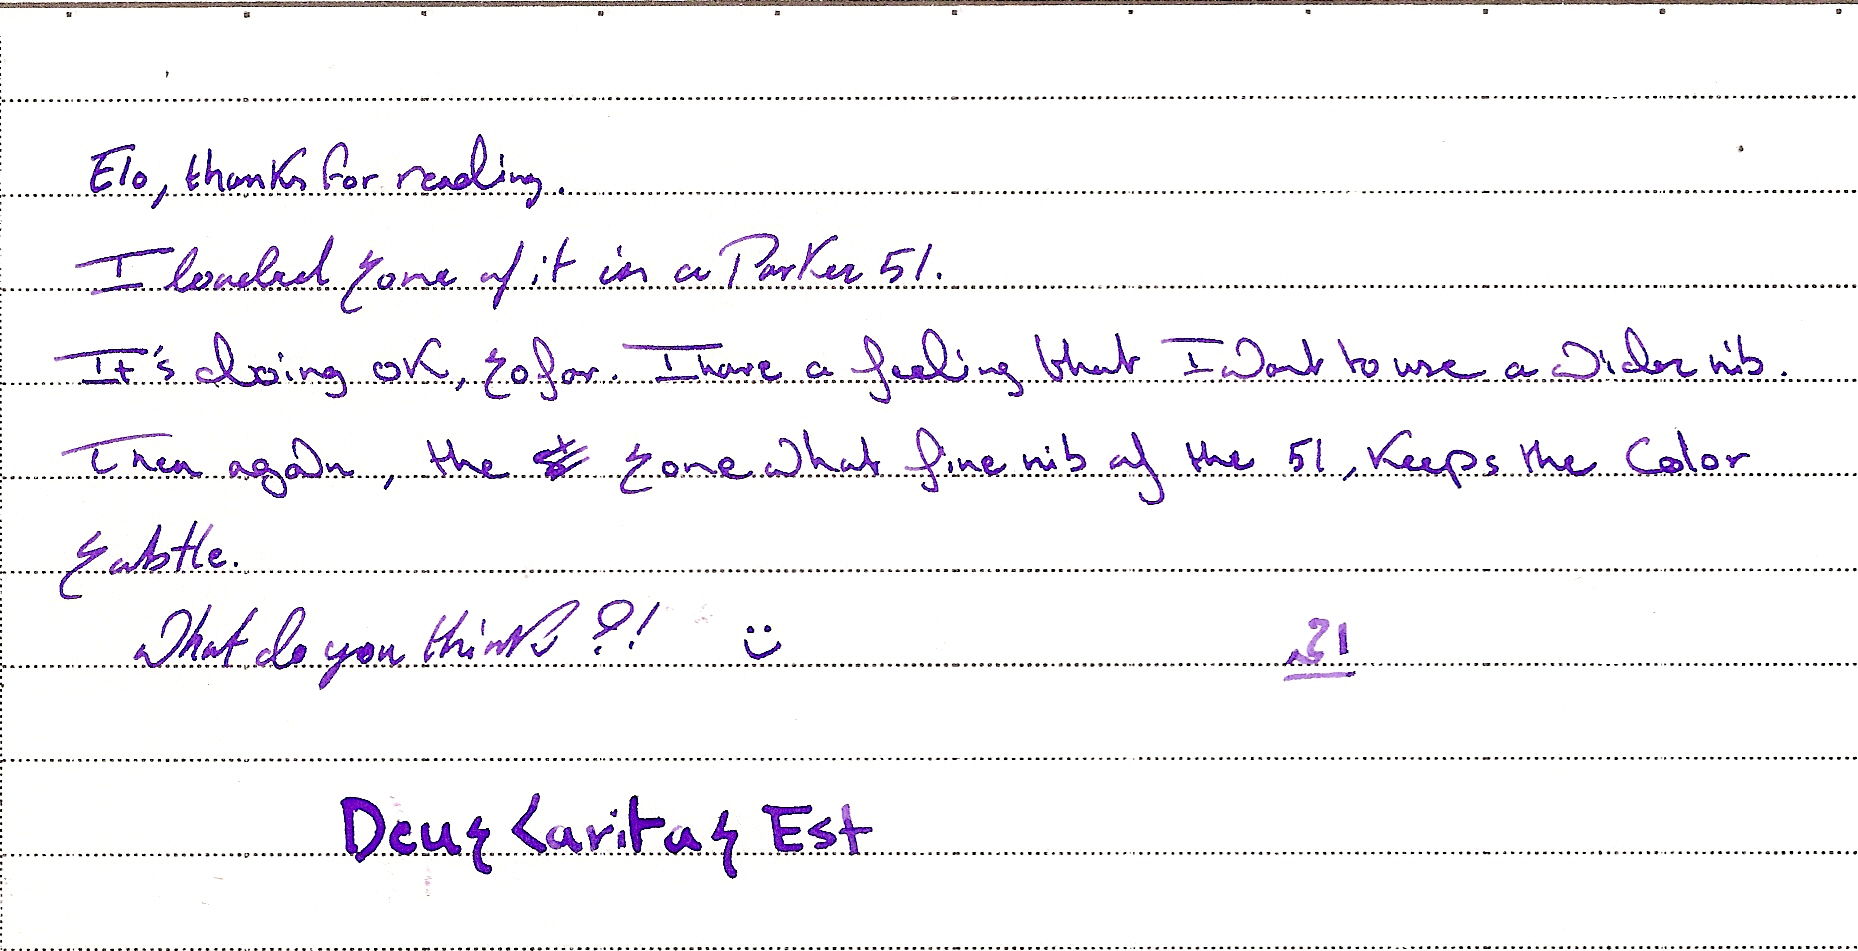 Elo, thanks for reading.
I loaded some of it in a Parker 51.
It's doing OK, so far. I have a feeling that I want to use a wider nib.
Then again, the somewhat fine nib of the 51, keeps the color
subtle.
What do you think ?! :)
31
Deus Caritas Est